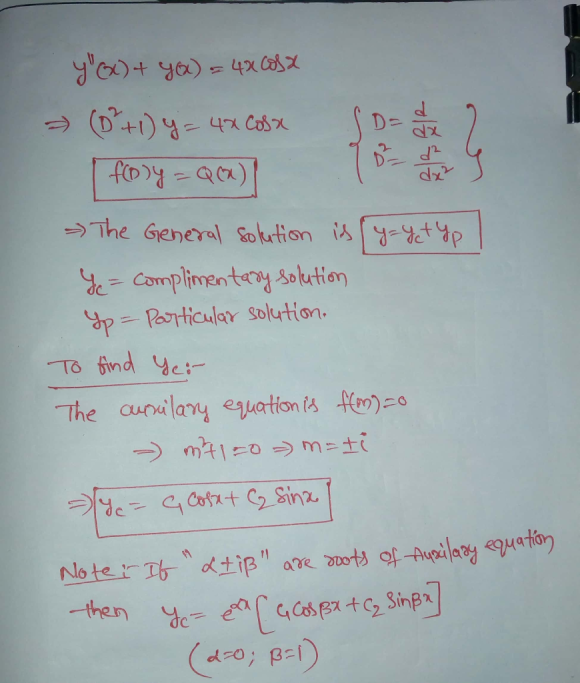 y''(x) + y(x) = 4x Cosx
⇒ (D²+1) y = 4x Cosx { D = d/dx
f(D)y = Q(x) D² = d²/dx² }
⇒ The General Solution is y = yc + yp
yc = Complimentary solution
yp = Particular solution.
To find yc :-
The auxilary equation is f(m)=0
⇒ m²+1=0 ⇒ m = ±i
⇒ yc = C₁ Cosx + C₂ Sinx
Note :- If "α±iβ" are roots of Auxilary equation
then yc = e^αx [C₁ Cosβx + C₂ Sinβx]
(α=0; β=1)